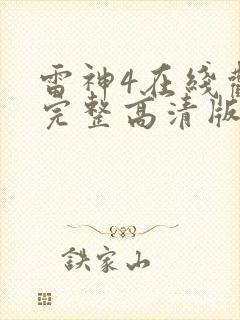 雷神4在线
完整高清版
鉄家山